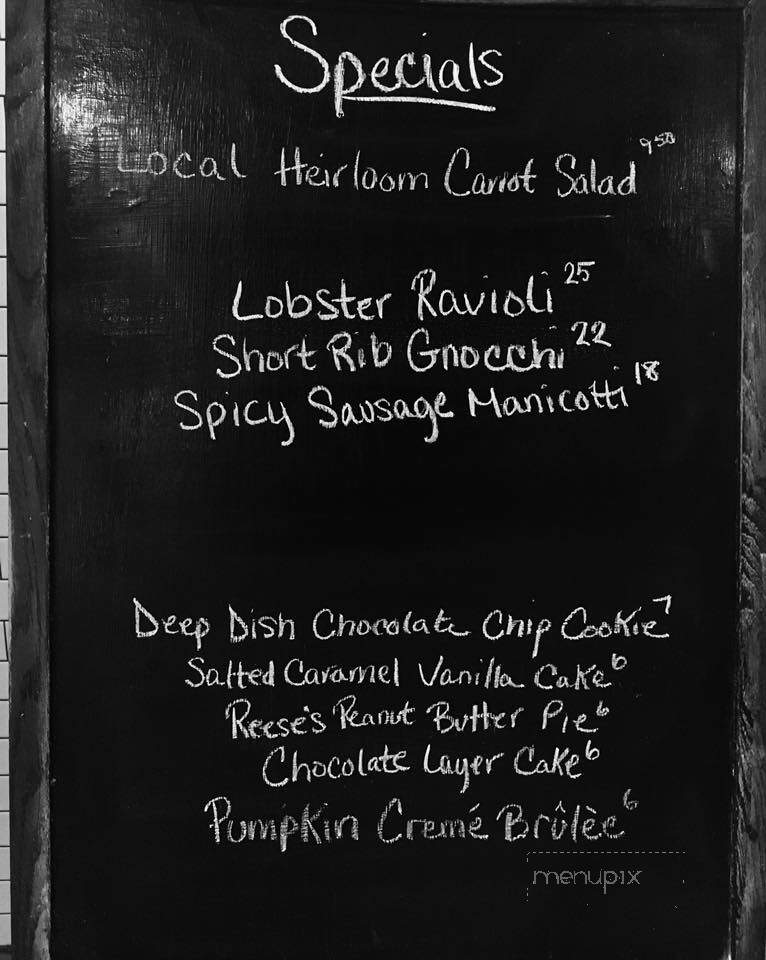 Specials
Local Heirloom Carrot Salad 9.50
Lobster Ravioli 25
Short Rib Gnocchi 22
Spicy Sausage Manicotti 18
Deep Dish Chocolate Chip Cookie 7
Salted Caramel Vanilla Cake 6
Reese's Peanut Butter Pie 6
Chocolate Layer Cake 6
Pumpkin Cremé Brûlèe 6
menupix